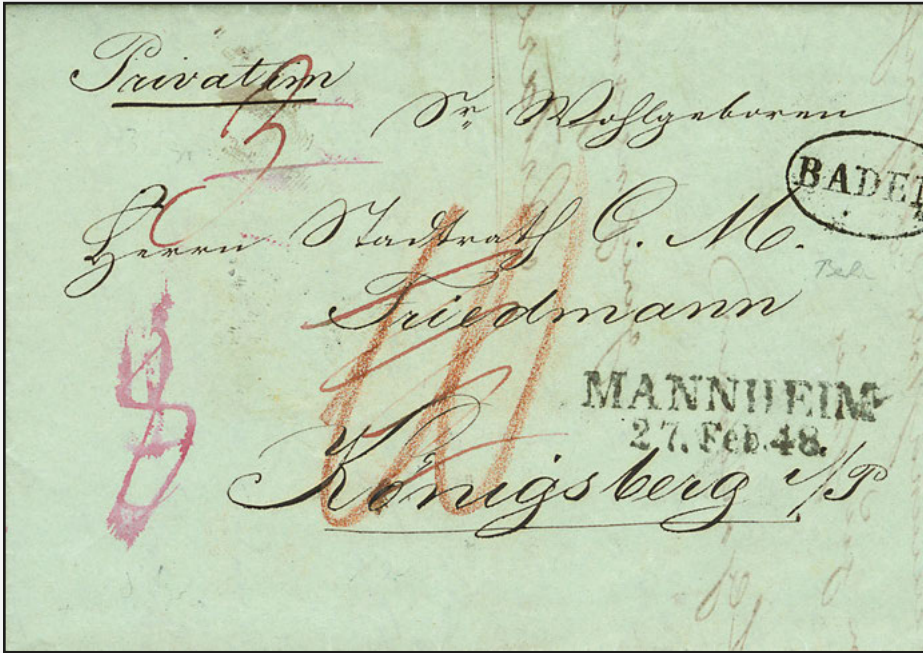 Privatim
Sr. Wohlgeboren
BADEN
Herrn Stadtrath C. M.
Friedmann
MANNHEIM
27. Feb. 48.
Königsberg i/P